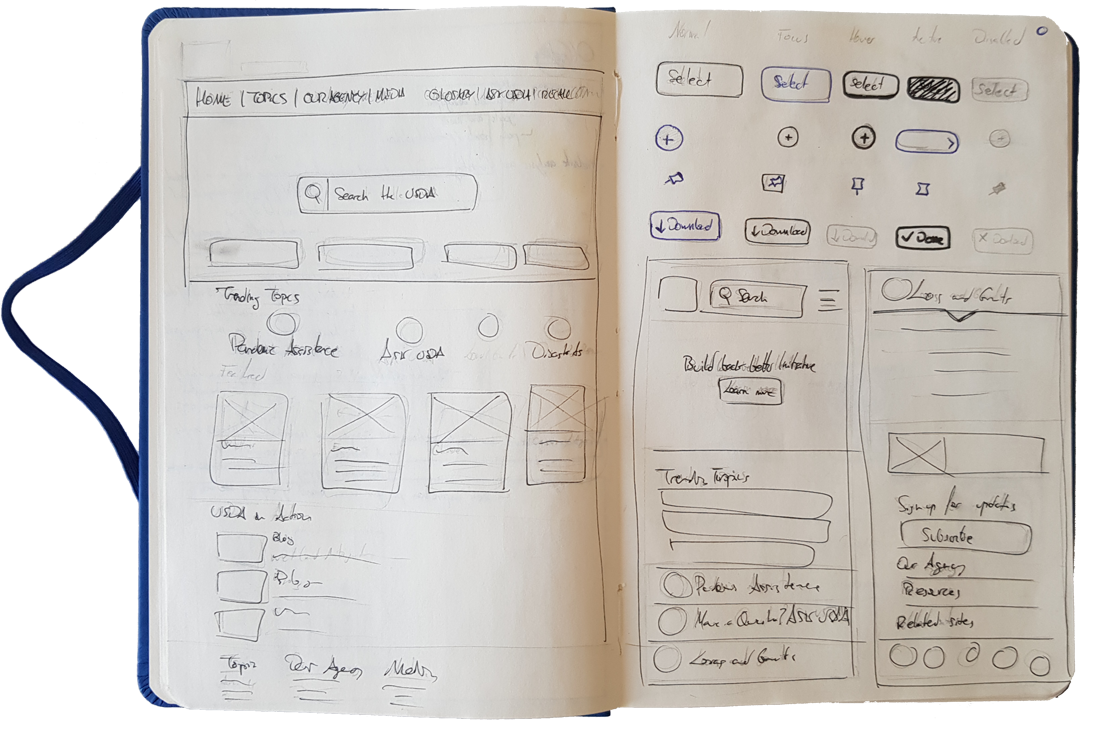 HOME | TOPICS | OUR AGENCY | MEDIA GLOSSARY | ASK USDA | RECALLS
Search the USDA
Trending Topics
Pandemic Assistance
ASK USDA
Disasters
USDA in Action
Blog
Topic
Our Agency
Media
Normal Focus Hover Active Disabled
Select Select Select Select
Download Download Done
Search
Build back better Initiative
Learn more
Trending Topics
Pandemic Assistance
Have a Question? ASK USDA
Loans and Grants
Loans and Grants
Sign up for updates
Subscribe
Our Agency
Resources
Related sites